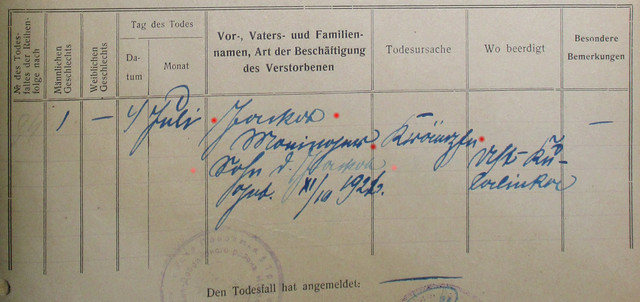 № des Todes-
falles der Reihen-
folge nach
Männlichen
Geschlechts
Weiblichen
Geschlechts
Tag des Todes
Da-
tum
Monat
Vor-, Vaters- und Familien-
namen, Art der Beschäftigung
des Verstorbenen
Todesursache
Wo beerdigt
Besondere
Bemerkungen
1
—
4
Juli
Jakob
Moninger
Sohn d. Jakob
geb. XI/19 192
Krämpfe
Ust-Ku-
lalinka
—
Den Todesfall hat angemeldet: